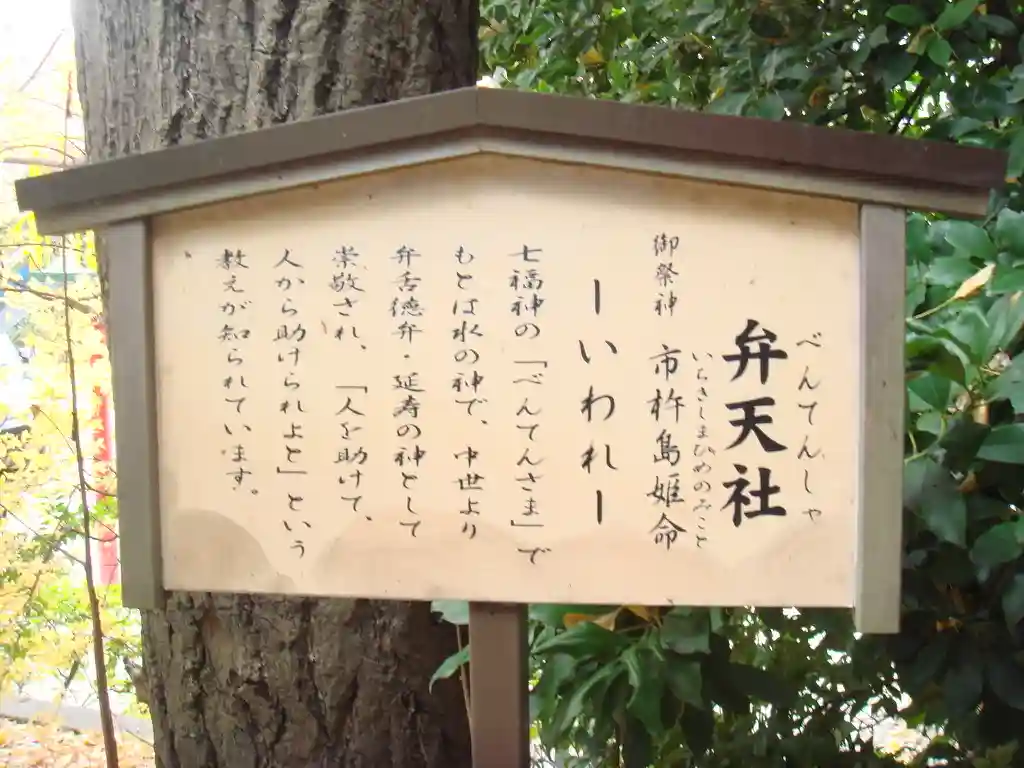 べんてんしゃ
弁天社
いちきしまひめのみこと
御祭神 市杵島姫命
ーいわれー
七福神の「べんてんさま」で
もとは水の神で、中世より
弁舌徳弁・延寿の神として
崇敬され、「人を助けて、
人から助けられよと」という
教えが知られています。